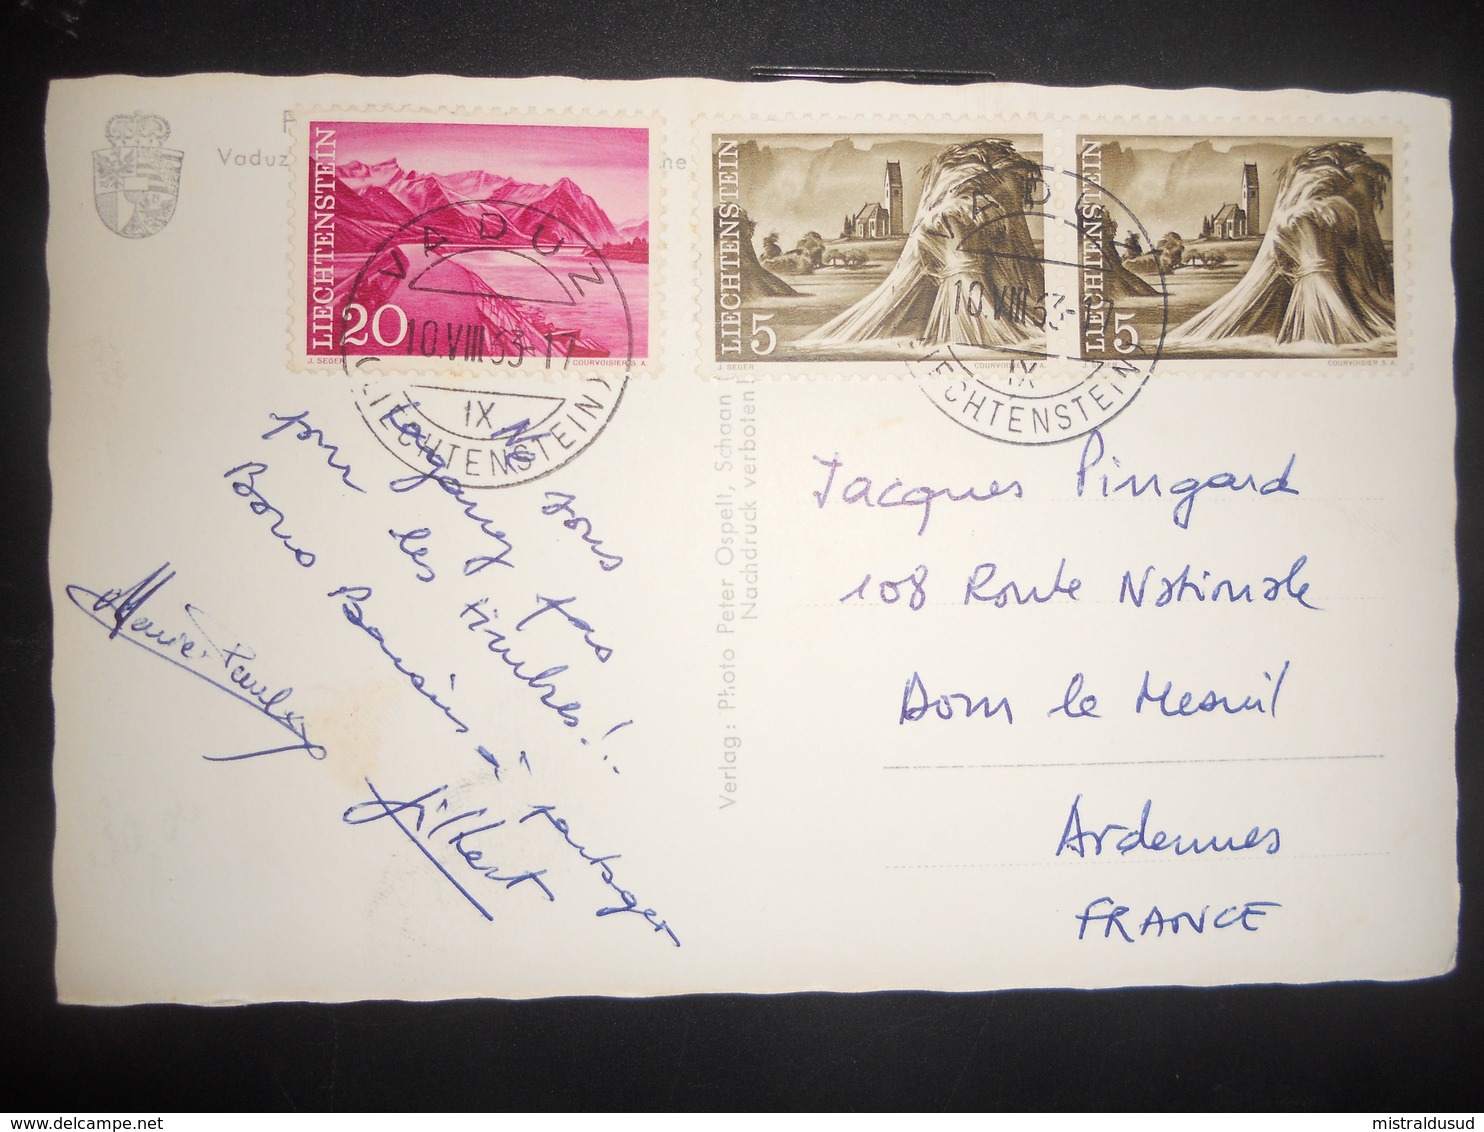 Vaduz
he
LIECHTENSTEIN
20
J. SEGER
COURVOISIER S. A.
LIECHTENSTEIN
5
J. SEGER
COURVOISIER S. A.
LIECHTENSTEIN
5
J. SEGER
COURVOISIER S. A.
VADUZ
10.VIII.63-17
IX
(LIECHTENSTEIN)
VADUZ
10.VIII.63-17
IX
(LIECHTENSTEIN)
Ne vous
pas
pour les timbres!..
Bons Baisers à partager
Marie-Paule
Gilbert
Verlag: Photo Peter Ospelt, Schaan (
Nachdruck verboten!
Jacques Pingard
108 Route Nationale
Dom le Mesnil
Ardennes
FRANCE
mistraldusud